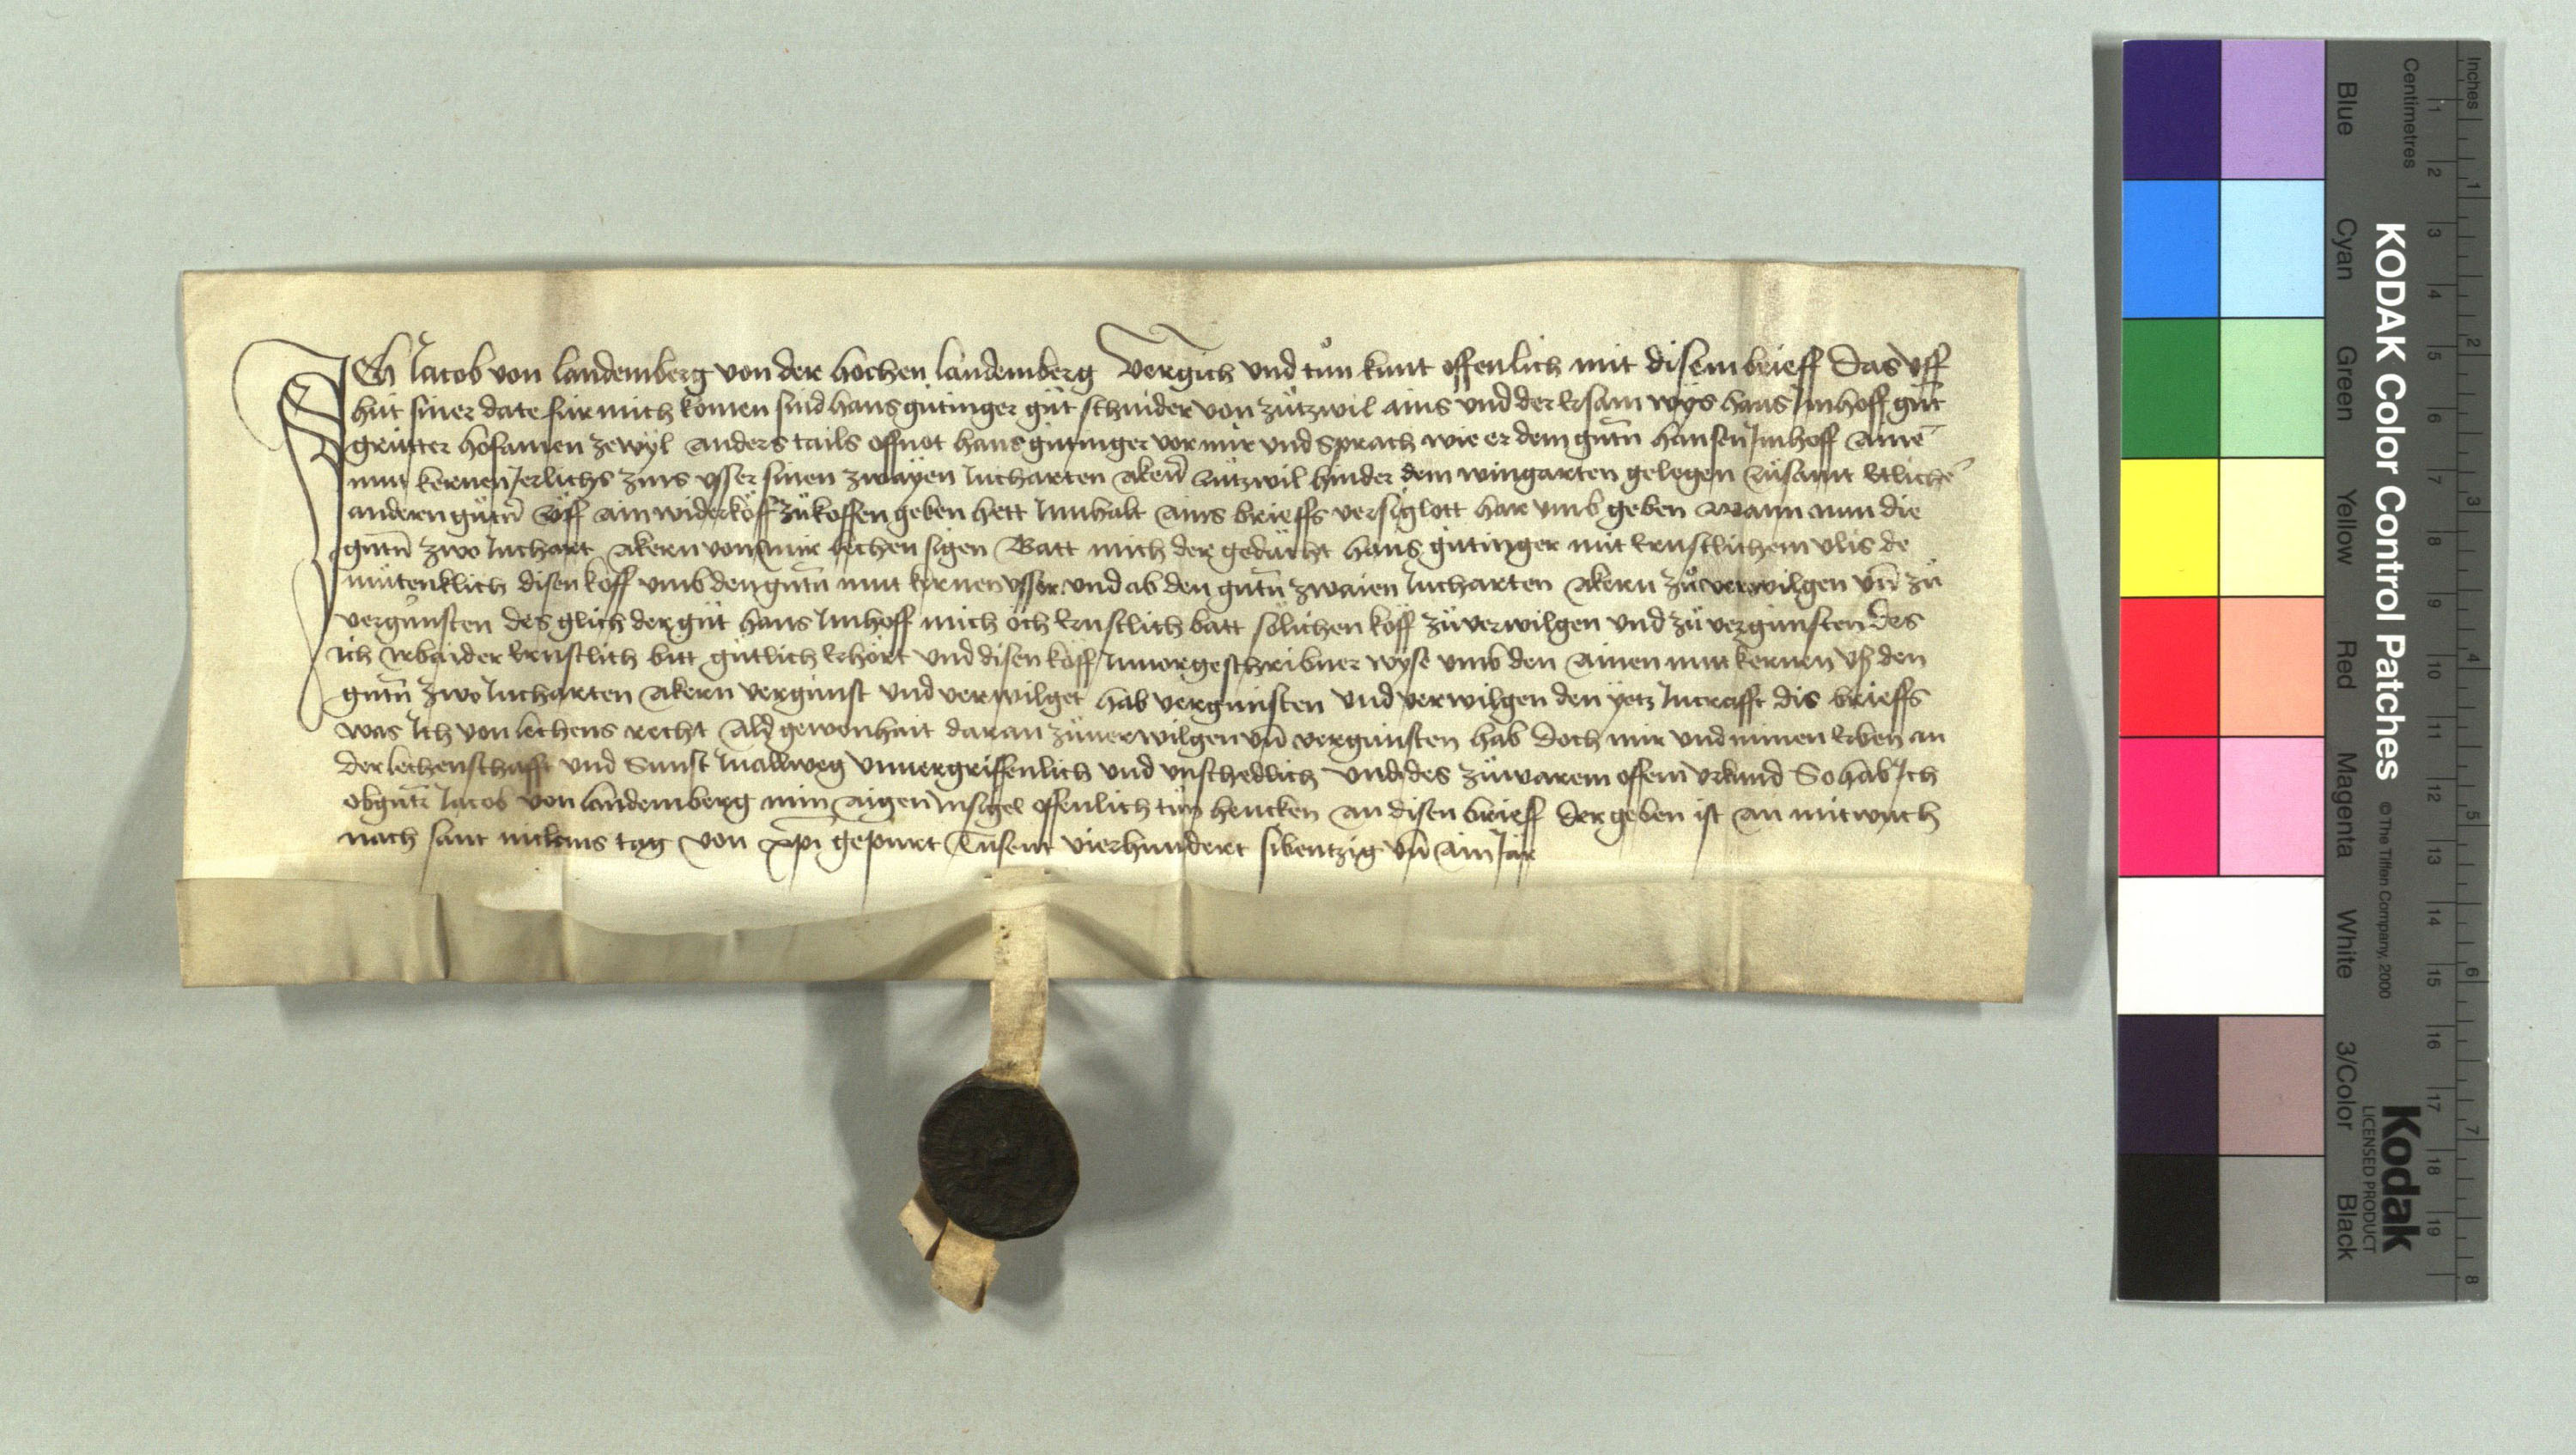 Ich Jacob von landemberg von der hochen landemberg Vergich und tůn kunt offenlich mit disem brieff Das vff
hüt siner date für mich komen sind hans gütinger güt schnider von zützwil ains und der Ersam wÿs hans Imhoff güt
hofamen zewÿl anders tails offnot hans gütinger vor mir und sprach wie er dem gūtn hansen Imhoff aine
mut kernen Jerlichs zins vsser sinen zwaÿen Jucharten aken̄ zützwil hinder dem wingarten gelegen zusamt Etliche
andern gütn̄ vff ain widerköff zü koffen geben hett Innhalt ains brieffs versiglott har vmb geben Wann nun die
gūtn zwo Juchart akern von mir lechen sigen Batt mich der gedächt hans gütinger mit Ernstlichem vlis de
mütenklich disen koff vmb den gūtn mut kernen vsser und ab den gūtn zwaien Jucharten akern zů verwilgen vn̄ zů
vergunsten des glich der güt hans Imhoff mich öch Ernstlich batt sölichen köff zü verwilgen und zü vergunsten des
ich Ir baider Ernstlich bitt gütlich Erhört und disen köff Inn vorgeschribner wÿse vmb den ainen mut kernen vß den
gūtn zwo Jucharten akern vergunst und verwilget hab vergunsten und verwilgen den ÿetz Incrafft dis brieffs
was Ich von lechens recht ald gewonhait daran zü verwilgen vn̄ vergunsten hab doch mir und minen Erben an
der lechenschafft und Sunst Inallweg vnuergriffenlich und vnschedlich Und des zü warem offem vrkund So hab Ich
obgūtr Jacob von landemberg min aigen Insigel offenlich tün hencken an disen brieff der geben ist an mitwuch
nach sant niclaus tag von xp̄i gepurt Tusent vierhundert sibentzig vn̄ ain Jar
KODAK Color Control Patches
© The Tiffen Company, 2000
Kodak
LICENSED PRODUCT
Inches 1 2 3 4 5 6 7 8
Centimetres 1 2 3 4 5 6 7 8 9 10 11 12 13 14 15 16 17 18 19
Blue Cyan Green Yellow Red Magenta White 3/Color Black